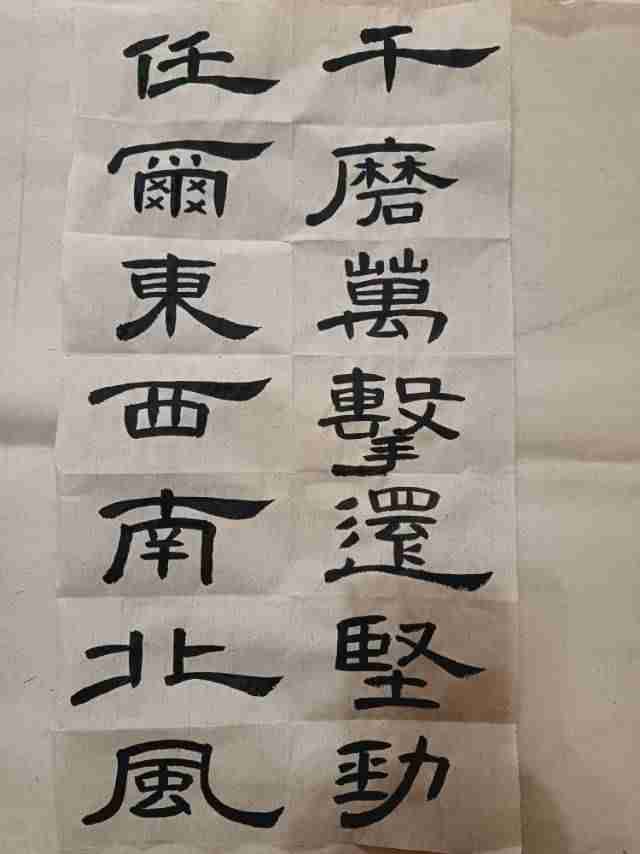 千磨萬擊還堅勁
任爾東西南北風